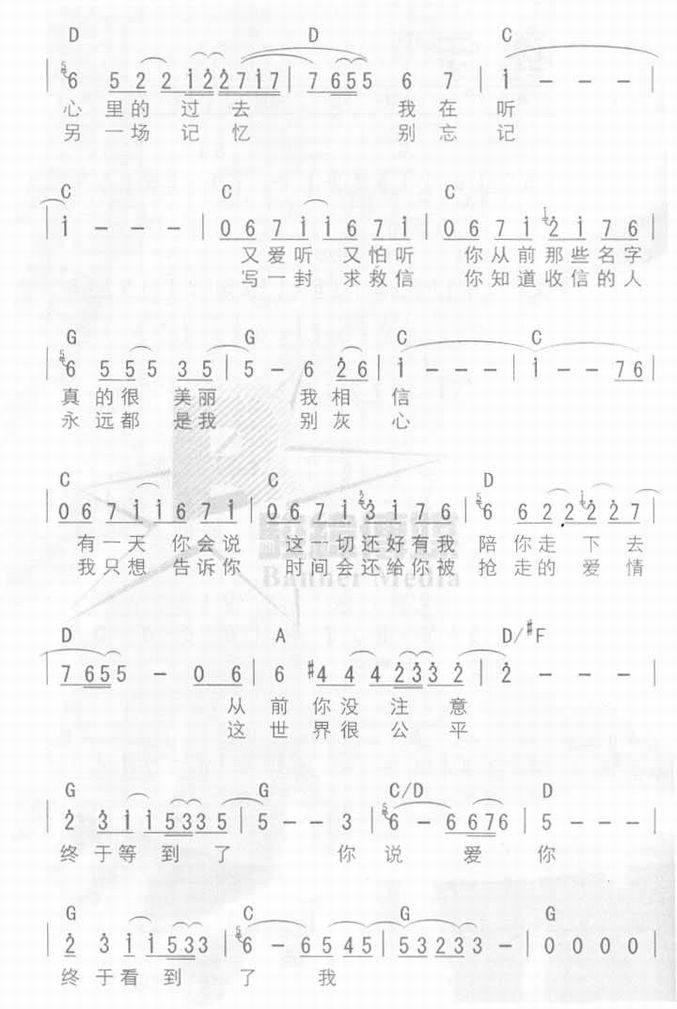 D D C
6 5 2 2 1 2 2 7 1 7 | 7 6 5 5 6 7 | 1 - - - |
心 里 的 过 去 我 在 听
另 一 场 记 忆 别 忘 记
C C C
1 - - - | 0 6 7 1 1 6 7 1 | 0 6 7 1 2 1 7 6 |
又 爱 听 又 怕 听 你 从 前 那 些 名 字
写 一 封 求 救 信 你 知 道 收 信 的 人
G G C C
6 5 5 5 3 5 | 5 - 6 2 6 | 1 - - - | 1 - - 7 6 |
真 的 很 美 丽 我 相 信
永 远 都 是 我 别 灰 心
C C D
0 6 7 1 1 6 7 1 | 0 6 7 1 3 1 7 6 | 6 6 2 2 2 2 7 |
有 一 天 你 会 说 这 一 切 还 好 有 我 陪 你 走 下 去
我 只 想 告 诉 你 时 间 会 还 给 你 被 抢 走 的 爱 情
Banner Media
D A D/#F
7 6 5 5 - 0 6 | 6 #4 4 4 2 3 3 2 | 2 - - - |
从 前 你 没 注 意
这 世 界 很 公 平
G G C/D D
2 3 1 1 5 3 3 5 | 5 - - 3 | 6 - 6 6 7 6 | 5 - - - |
终 于 等 到 了 你 说 爱 你
G C G G
2 3 1 1 5 3 3 | 6 - 6 5 4 5 | 5 3 2 3 3 - | 0 0 0 0 |
终 于 看 到 了 我